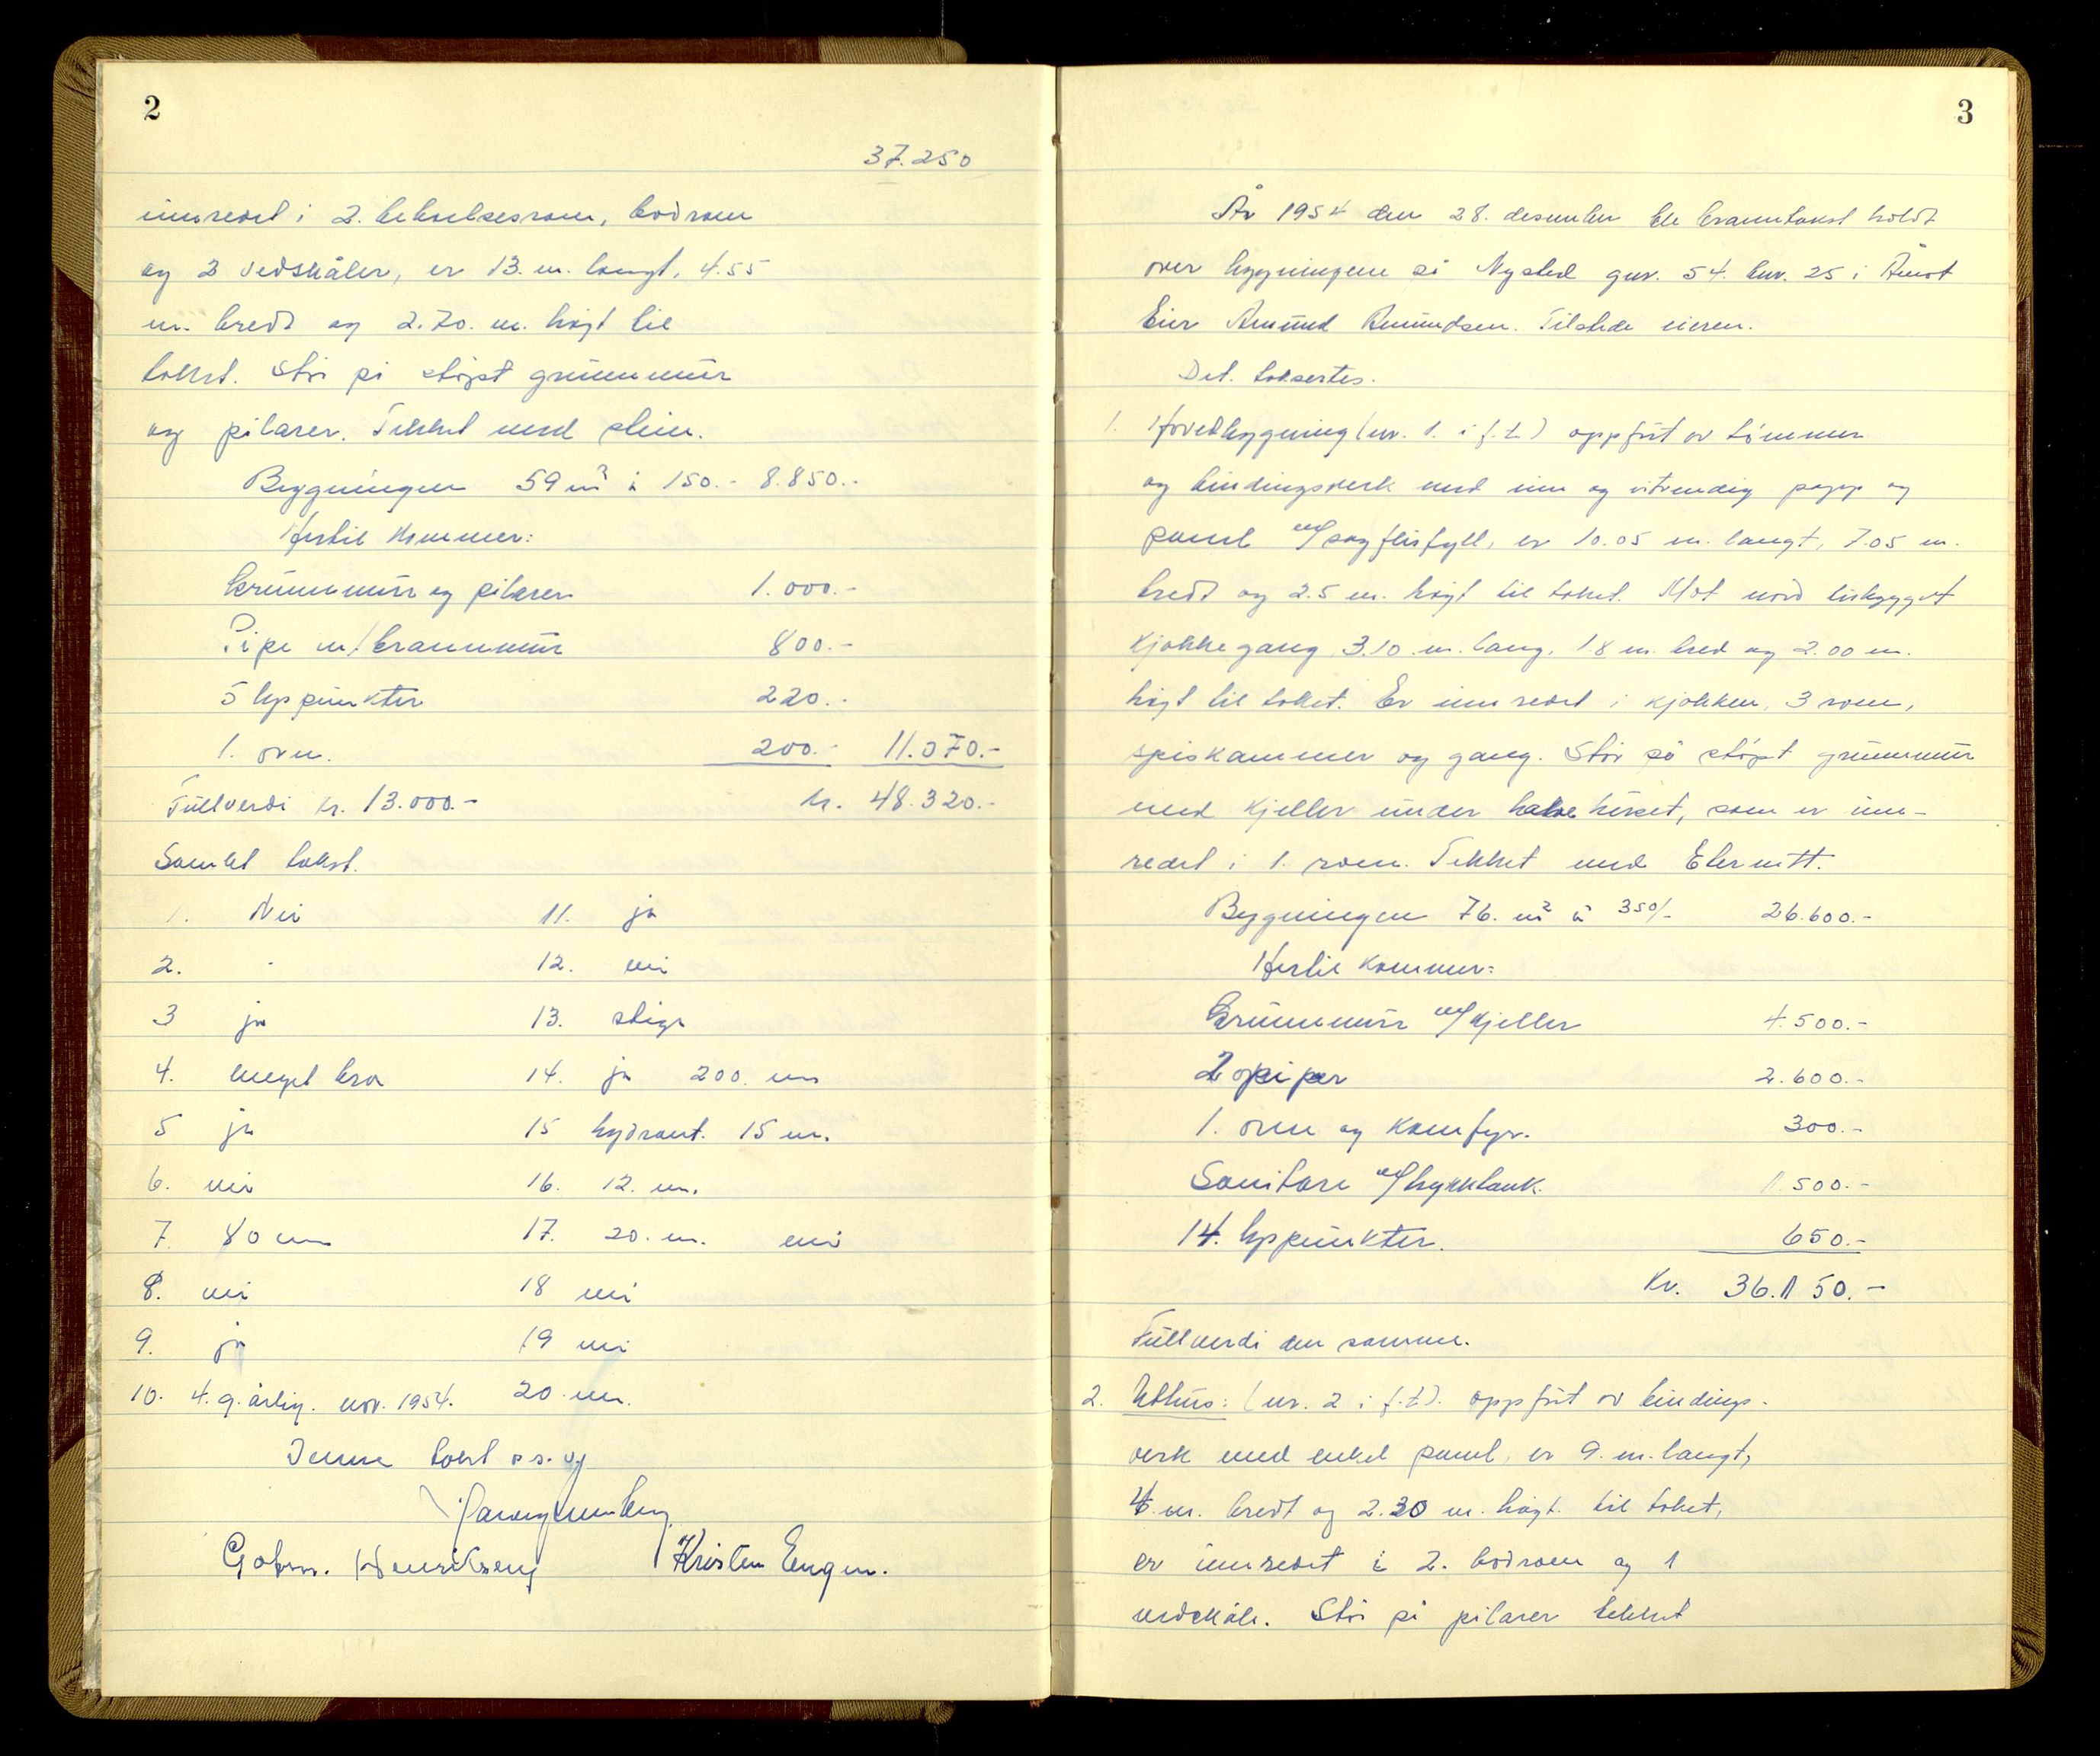 2
37.250
innredet i 2. beboelsesrom, bodrom
og 3 vedskåler, er 13. m. langt, 4.55
m. bredt og 2.70. m. høgt til
taket. Står på støpt grunnmur
og pilarer. Tekket med stein.
Bygningen 59 m² à 150.- 8.850.-
Hertil kommer:
Grunnmur og pilarer 1.000.-
Pipe m/brannmur 800.-
5 lyspunkter 220.-
1. ovn. 200.- 11.070.-
Fullverdi kr. 13.000.- kr. 48.320.-
Samlet takst.
1. Nei 11. ja
2. - 12. nei
3 ja 13. stige
4. meget bra 14. ja 200. m
5 ja 15 hydrant. 15 m.
6. nei 16. 12. m.
7. 80 cm 17. 20. m. nei
8. nei 18 nei
9. ja 19 nei
10. 4. g. årlig. nov. 1954. 20. nei.
Denne takst
Kristen Engen.
Henriksen
3
År 1954 den 28. desember ble branntakst holdt
over bygningene på Nysted gnr. 54. bnr. 25 i Åmot
Eier Amund Amundsen. Tilstede eieren.
Det taksertes.
1. Hovedbygning (nr. 1. i f.t.) oppført av tømmer
og bindingsverk med inn og utvendig papp og
panel m/sagflisfyll, er 10.05 m. langt, 7.05 m.
bredt og 2.5 m. høgt til taket. Mot nord tilbygget
kjøkkegang 3.10 m. lang, 1.8 m. bred og 2.00 m.
høgt til taket. Er innredet i kjøkken, 3 rom,
spiskammer og gang. Står på støpt grunnmur
med kjeller under halve huset, som er inn-
redet i 1. rom. Tekket med Eternitt.
Bygningen 76. m² à 350/- 26.600.-
Hertil kommer:
Grunnmur m/kjeller 4.500.-
2 piper 2.600.-
1. ovn og komfyr. 300.-
Sanitære m/trykktank. 1.500.-
14. lyspunkter. 650.-
Kr. 36.150.-
Fullverdi den samme.
2. Uthus: (nr. 2 i f.t). oppført av bindings-
verk med enkel panel, er 9. m. langt,
4. m. bredt og 2.30 m. høgt. til taket,
er innredet i 2. bodrom og 1
vedskåle. Står på pilarer tekket